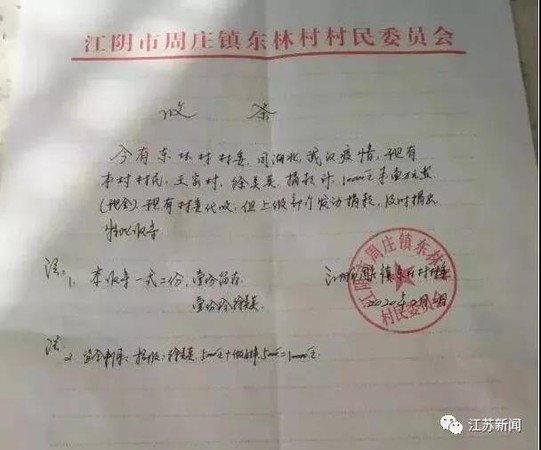 江阴市周庄镇东林村村民委员会
收 条
今有东林村村委,因湖北,武汉疫情,现有
本村村民,王 村,徐美英,捐款计,10000元 万元整
(现金)现有村委代收,但上级部门发动捐款,及时捐出
特此收条
注:1、本收条一式二份,壹份留存
壹份给徐美英
江阴市周庄镇东林村村委
2020年2月 日
江阴市周庄镇东林村
村民委员会
注2、 捐款:徐美英5000元+ 5000元=10000元
江苏新闻